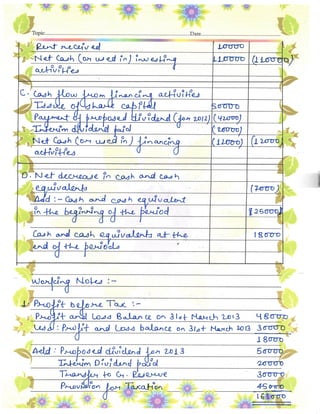 Topic Date
Rent received 10000
Net Cash (or used in) investing 110000 (110000)
activities
C. Cash flow from financing activities
Issue of share capital 50000
Payment of proposed dividend (for 2012) (42000)
Interim dividend paid (20000)
Net Cash (or used in) financing (12000) (12000)
activities
D. Net decrease in cash and cash
equivalents (7000)
Add :- Cash and cash equivalent
in the beginning of the period 25000
Cash and cash equivalents at the 18000
end of the periods
Working Notes :-
1. Profit Before Tax :-
Profit and Loss Balance on 31st March 2013 48000
Less: Profit and Loss balance on 31st March 2013 30000
18000
Add: Proposed dividend for 2013 50000
Interim Dividend paid 20000
Transfer to G. Reserve 30000
Provision for Taxation 45000
163000